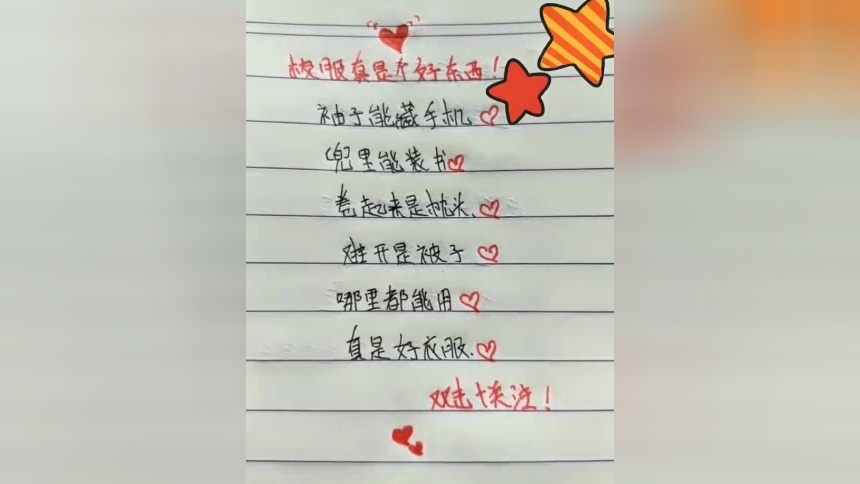 校服真是个好东西！
袖子能藏手机
兜里能装书
卷起来是枕头.
摊开是被子
哪里都能用
真是好衣服.
双击+关注！